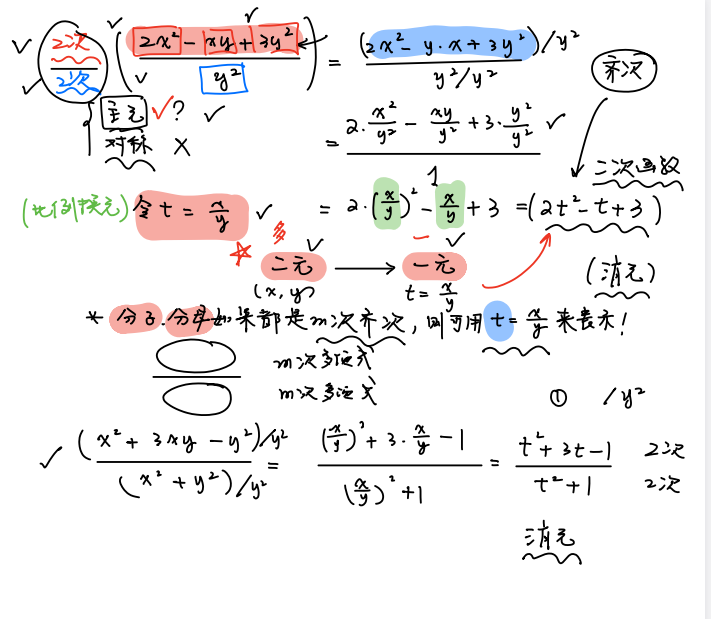 2次/2次 (2x²-xy+3y²)/y² = (2x²-y·x+3y²)/y² / y²/y² 齐次
主元 ✓? ✓
对称 ×
= (2·x²/y² - xy/y² + 3·y²/y²)/1 ✓
二次函数
(比例换元) 令 t = x/y ✓ = 2·(x/y)² - x/y + 3 = (2t²-t+3)
多 一
二元 → 一元 (消元)
(x, y) t = x/y
* 分子.分母如果都是m次齐次, 则可用 t = x/y 来表示!
m次多项式
m次多项式
① /y²
✓ (x²+3xy-y²)/y² / (x²+y²)/y² = ((x/y)²+3·x/y-1)/((x/y)²+1) = (t²+3t-1)/(t²+1) 2次 2次
消元